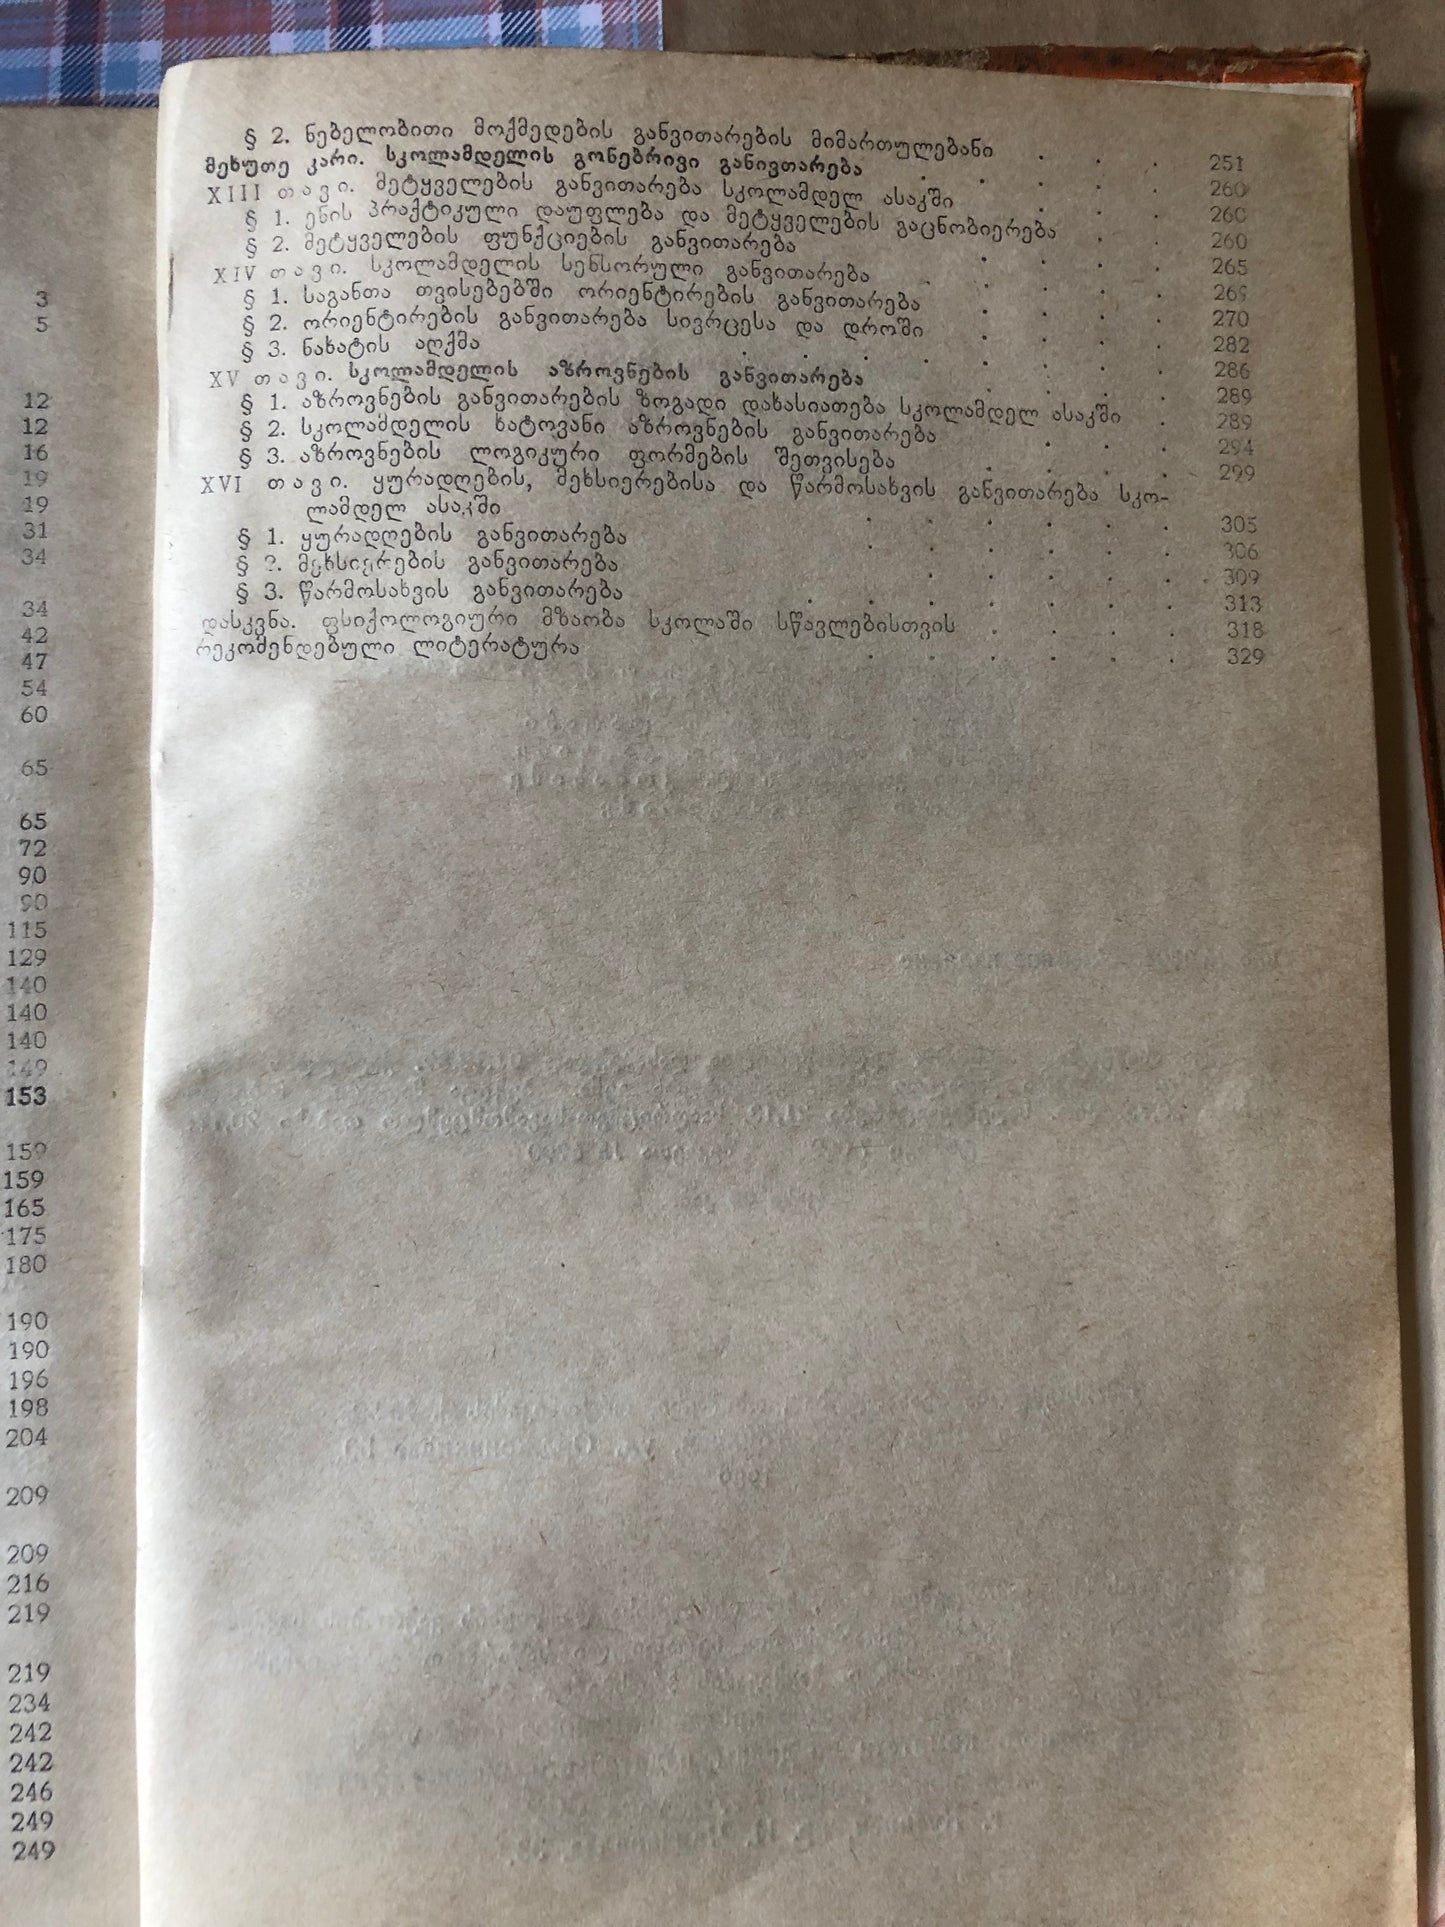 3
5
12
12
16
19
19
31
34
34
42
47
54
60
65
65
72
90
90
115
129
140
140
140
149
153
159
159
165
175
180
190
190
196
198
204
209
209
216
219
219
234
242
242
246
249
249
§ 2. ნებელობითი მოქმედების განვითარების მიმართულებანი . . . 251
მეხუთე კარი. სკოლამდელის გონებრივი განივთარება . . . . . 260
XIII თავი. მეტყველების განვითარება სკოლამდელ ასაკში . . . 260
§ 1. ენის პრაქტიკული დაუფლება და მეტყველების გაცნობიერება . . 260
§ 2. მეტყველების ფუნქციების განვითარება . . . . 265
XIV თავი. სკოლამდელის სენსორული განვითარება . . . . . 269
§ 1. საგანთა თვისებებში ორიენტირების განვითარება . . . . 270
§ 2. ორიენტირების განვითარება სივრცესა და დროში . . . . 282
§ 3. ნახატის აღქმა . . . . . . . . 286
XV თავი. სკოლამდელის აზროვნების განვითარება . . . . 289
§ 1. აზროვნების განვითარების ზოგადი დახასიათება სკოლამდელ ასაკში . 289
§ 2. სკოლამდელის ხატოვანი აზროვნების განვითარება . . . 294
§ 3. აზროვნების ლოგიკური ფორმების შეთვისება . . . . 299
XVI თავი. ყურადღების, მეხსიერებისა და წარმოსახვის განვითარება სკო-
ლამდელ ასაკში . . . . . . 305
§ 1. ყურადღების განვითარება . . . . . . 306
§ 2. მეხსიერების განვითარება . . . . . 309
§ 3. წარმოსახვის განვითარება . . . . . . . 313
დასკვნა. ფსიქოლოგიური მზაობა სკოლაში სწავლებისთვის . . . . 318
რეკომენდებული ლიტერატურა . . . . . . 329